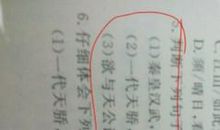 D. 须/明日,看
5. 判断下列句中
(1)秦皇汉武
(2)一代天骄
(3)欲与天公
6. 仔细体会下列
(1)一代天骄